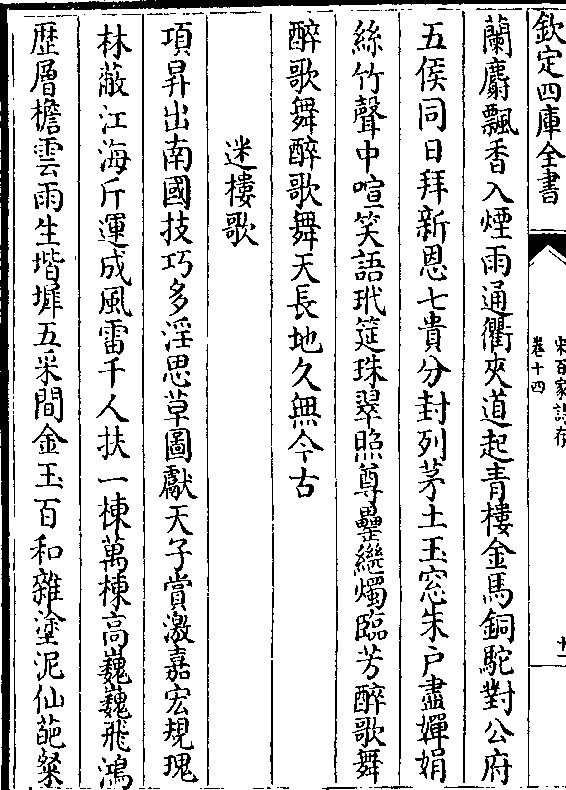 欽定四庫全書
宋百家詩存
卷十四
十一
蘭麝飄香入煙雨通衢夾道起青樓金馬銅駝對公府
五侯同日拜新恩七貴分封列茅土玉窓朱戸盡嬋娟
絲竹聲中喧笑語玳筵珠翠照尊罍繞燭臨芳醉歌舞
醉歌舞醉歌舞天長地久無今古
迷樓歌
項昇出南國技巧多淫思草圖獻天子賞激嘉宏規瑰
林蔽江海斤運成風雷千人扶一棟萬棟高巍巍飛鴻
歴層檐雲雨生堦墀五采間金玉百和雜塗泥仙葩粲